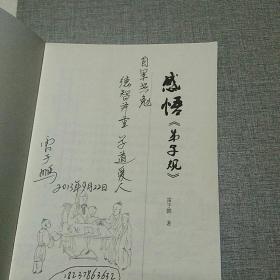 感悟
《弟子规》
雷子鹏 著
自累共勉
德智并重 子道爱人
雷子鹏
2013年9月22日